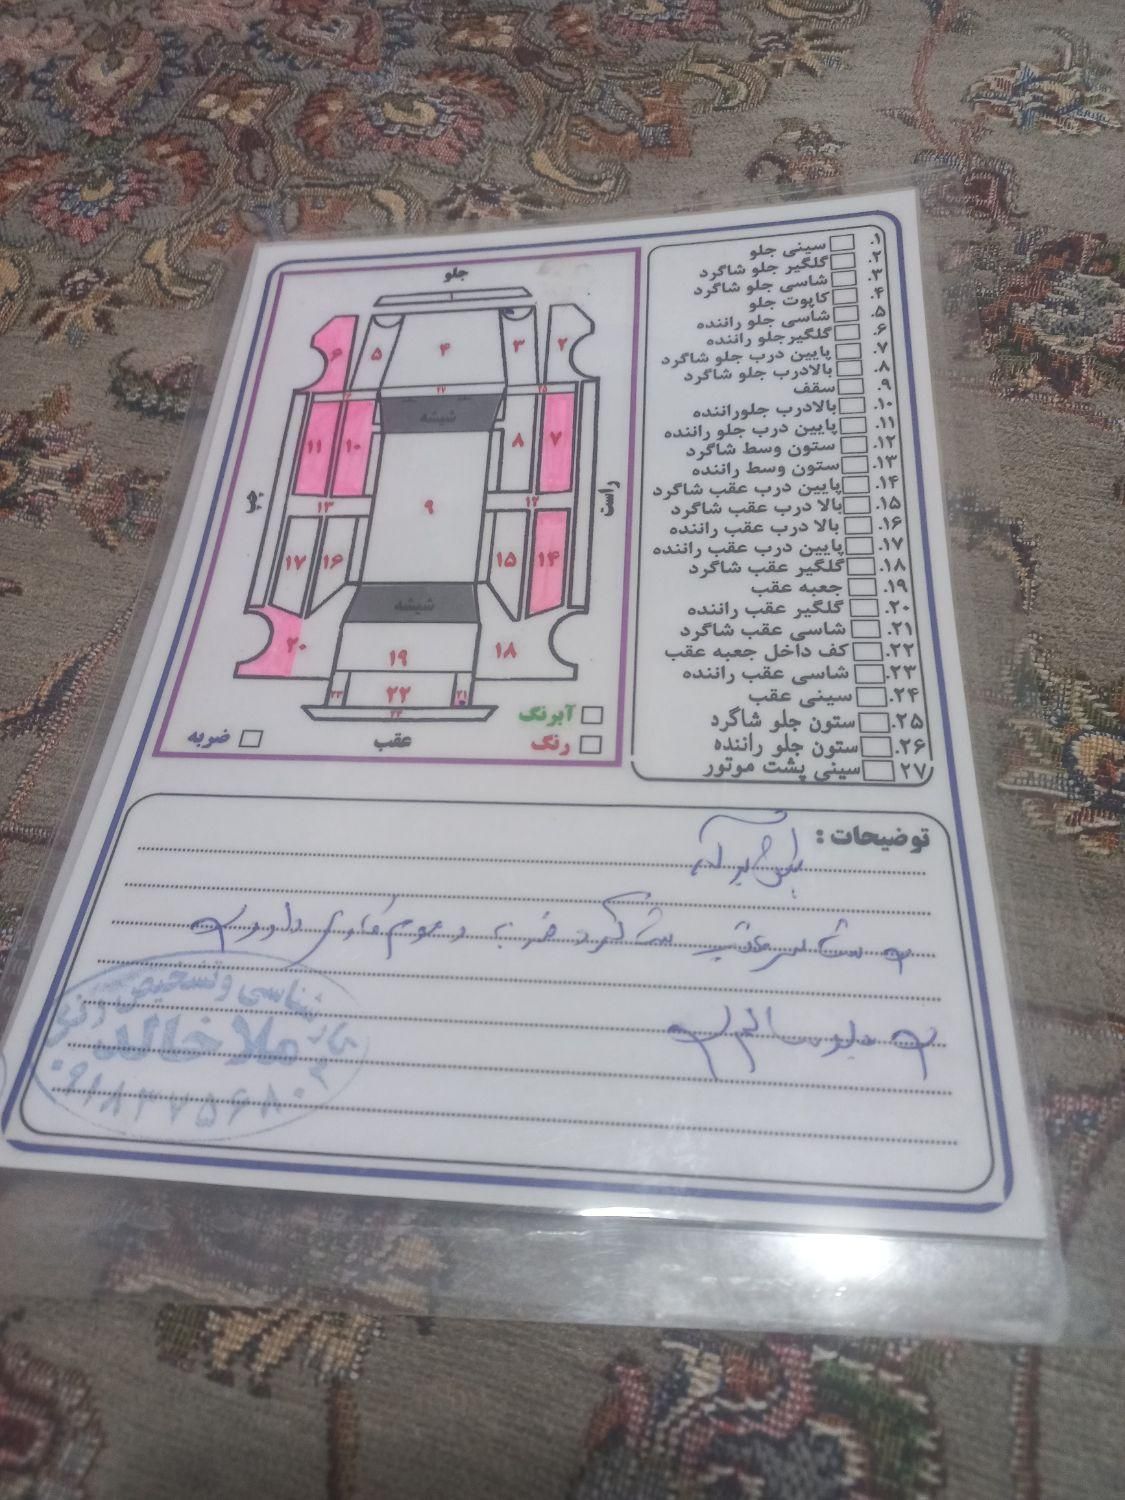 جلو
۱. سینی جلو
۲. گلگیر جلو شاگرد
۳. شاسی جلو شاگرد
۴. کاپوت جلو
۵. شاسی جلو راننده
۶. گلگیرجلو راننده
۷. پایین درب جلو شاگرد
۸. بالادرب جلو شاگرد
۹. سقف
۱۰. بالادرب جلوراننده
۱۱. پایین درب جلو راننده
۱۲. ستون وسط شاگرد
۱۳. ستون وسط راننده
۱۴. پایین درب عقب شاگرد
۱۵. بالا درب عقب شاگرد
۱۶. بالا درب عقب راننده
۱۷. پایین درب عقب راننده
۱۸. گلگیر عقب شاگرد
۱۹. جعبه عقب
۲۰. گلگیر عقب راننده
۲۱. شاسی عقب شاگرد
۲۲. کف داخل جعبه عقب
۲۳. شاسی عقب راننده
۲۴. سینی عقب
۲۵. ستون جلو شاگرد
۲۶. ستون جلو راننده
۲۷. سینی پشت موتور
۲ ۳ ۴ ۵ ۶
۲۵ ۲۷
شیشه
۷ ۸ ۱۰ ۱۱
راست
چپ
۹
۱۲ ۱۳
۱۴ ۱۵ ۱۶ ۱۷
شیشه
۱۸ ۱۹ ۲۰
۲۱ ۲۲ ۲۳
آبرنگ
رنگ
عقب
ضربه
توضیحات :
شاگرد ضربه و